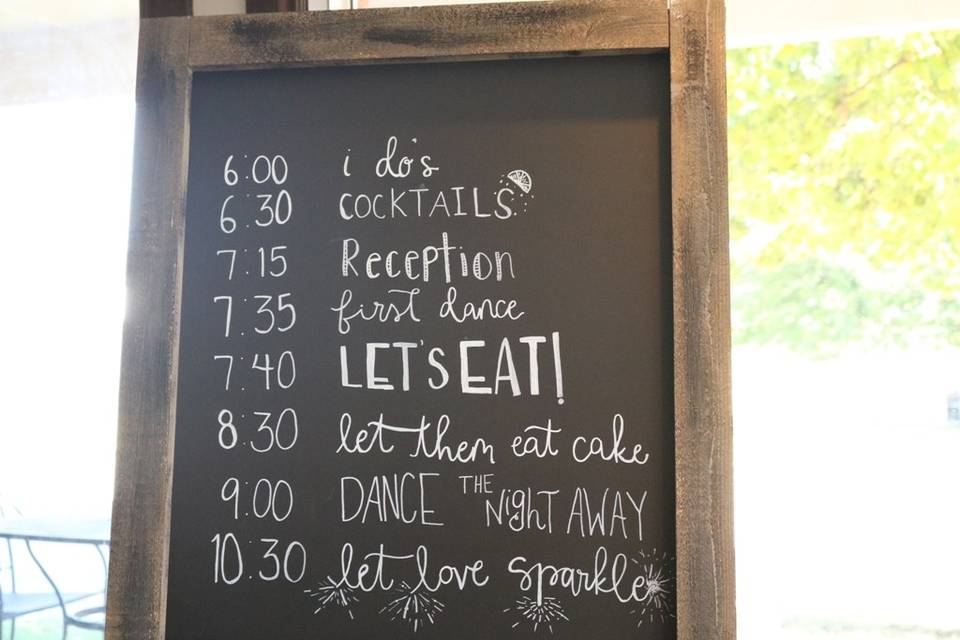 6:00 i do's
6:30 COCKTAILS
7:15 Reception
7:35 first dance
7:40 LET'S EAT!
8:30 let them eat cake
9:00 DANCE THE NighT AWAY
10:30 let love sparkle